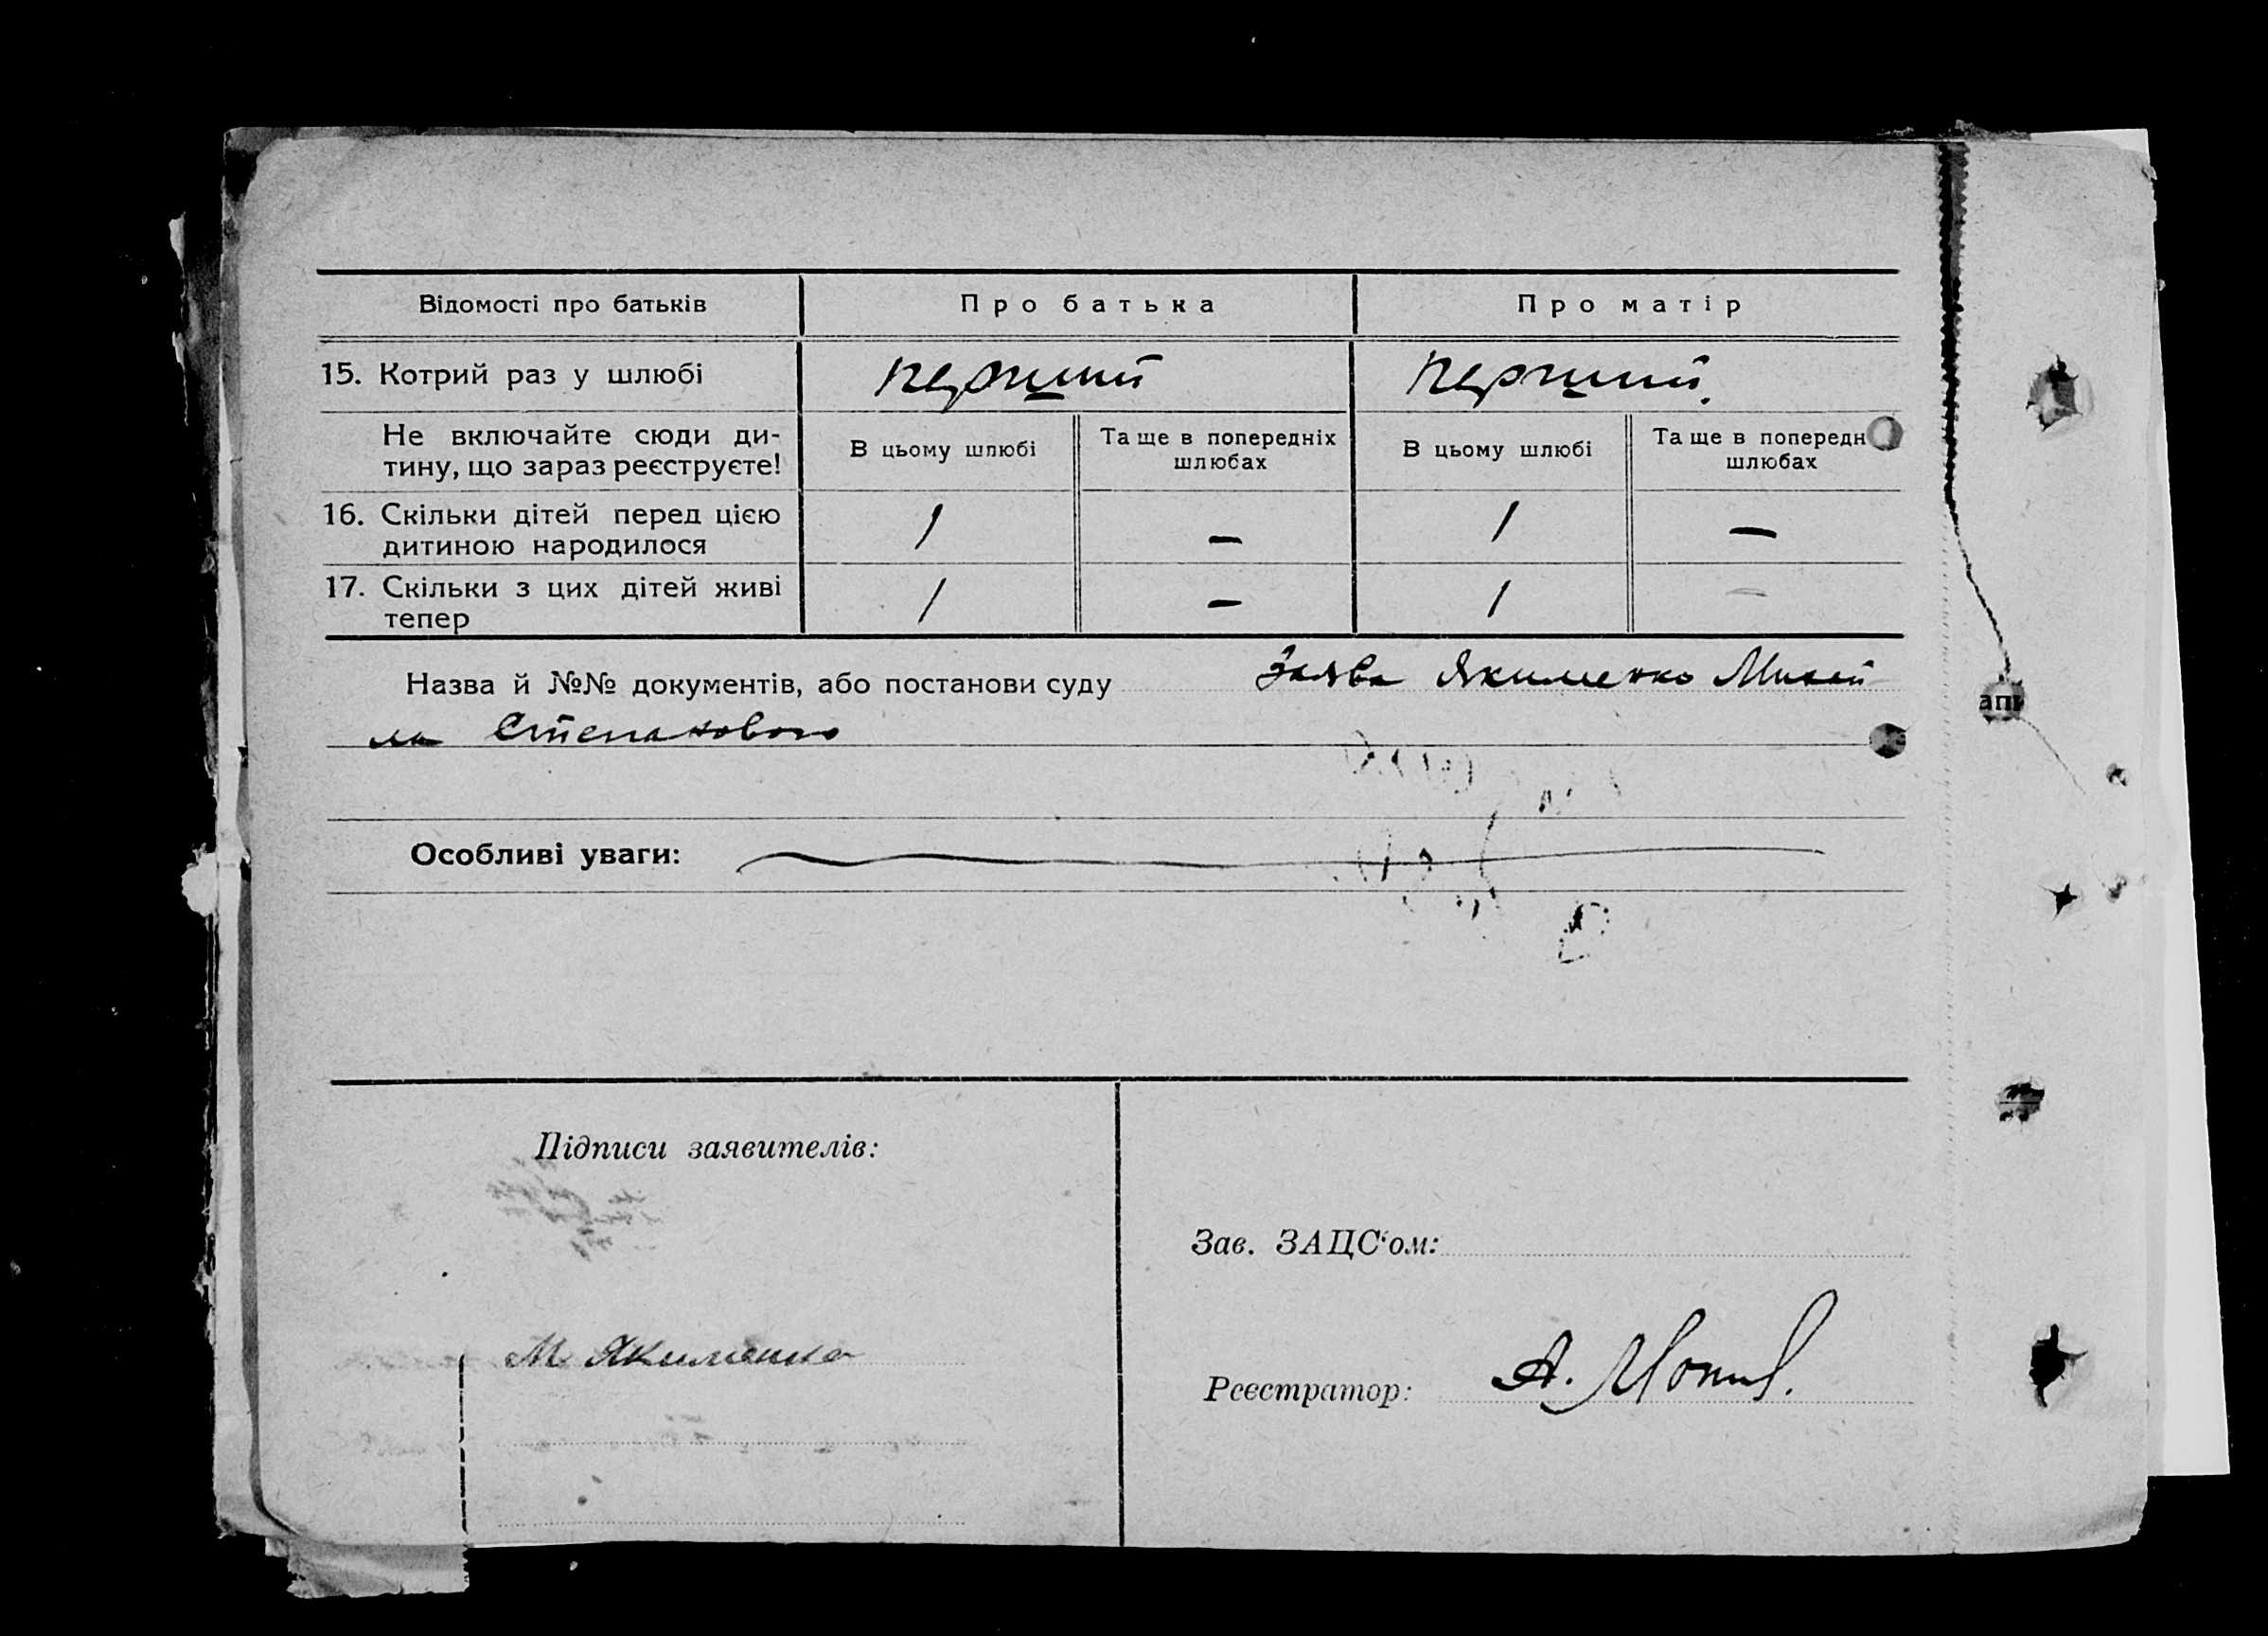 Відомості про батьків
Про батька
Про матір
15. Котрий раз у шлюбі
перший
перший.
Не включайте сюди ди-
тину, що зараз реєструєте!
В цьому шлюбі
Та ще в попередніх
шлюбах
В цьому шлюбі
Та ще в попередн
шлюбах
16. Скільки дітей перед цією
дитиною народилося
1
—
1
—
17. Скільки з цих дітей живі
тепер
1
—
1
—
Назва й №№ документів, або постанови суду
Заява Якименко Михай
ла Степанового
Особливі уваги:
Підписи заявителів:
Зав. ЗАЦС'ом:
М Якименко
Реєстратор:
А.